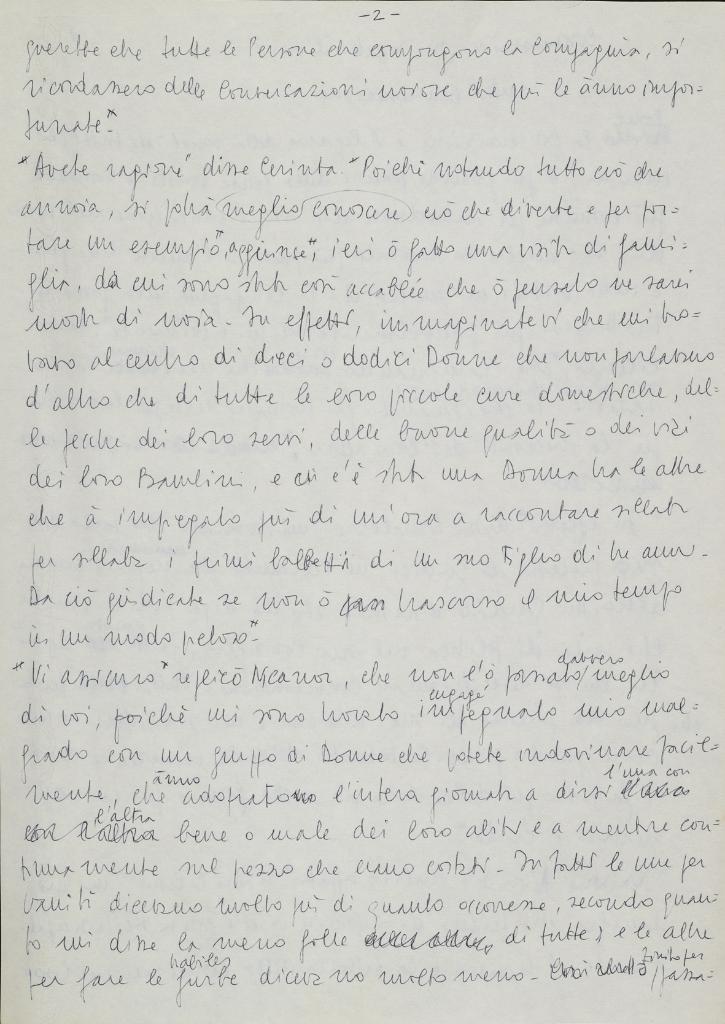 - 2 -
guerebbe che tutte le Persone che compongono la Compagnia, si
ricordassero delle Conversazioni noiose che più le ànno impor=
tunate"
"Avete ragione" disse Cerinta. "Poiché notando tutto ciò che
annoia, si potrà meglio conoscere ciò che diverte e per por=
tare un esempio", aggiunse", ieri ò fatto una visita di fami=
glia, da cui sono stata così accablée che ò pensato ne sarei
morta di noia. In effetti, immaginatevi che mi tro=
vavo al centro di dieci o dodici Donne che non parlavano
d'altro che di tutte le loro piccole cure domestiche, del=
le pecche dei loro servi, delle buone qualità o dei vizi
dei loro Bambini, e ci c'è stata una Donna tra le altre
che à impiegato più di un'ora a raccontare sillaba
per sillaba i primi balbettii di un suo Figlio di tre anni.
Da ciò giudicate se non ò trascorso il mio tempo
in un modo penoso"
"Vi assicuro" replicò Nicanor, che non l'ò passato davvero meglio
di voi, poiché mi sono trovato impegnato engagé mio mal=
grado con un gruppo di Donne che potete indovinare facil=
mente, che ànno adoprato l'intera giornata a dirsi l'una con
l'altra bene o male dei loro abiti e a mentire con=
tinuamente sul prezzo che erano costati. Infatti le une per
vanità dicevano molto più di quanto occorresse, secondo quan=
to mi disse la meno folle di tutte; e le altre
per fare le furbe habiles dicevano molto meno. finito per passa=